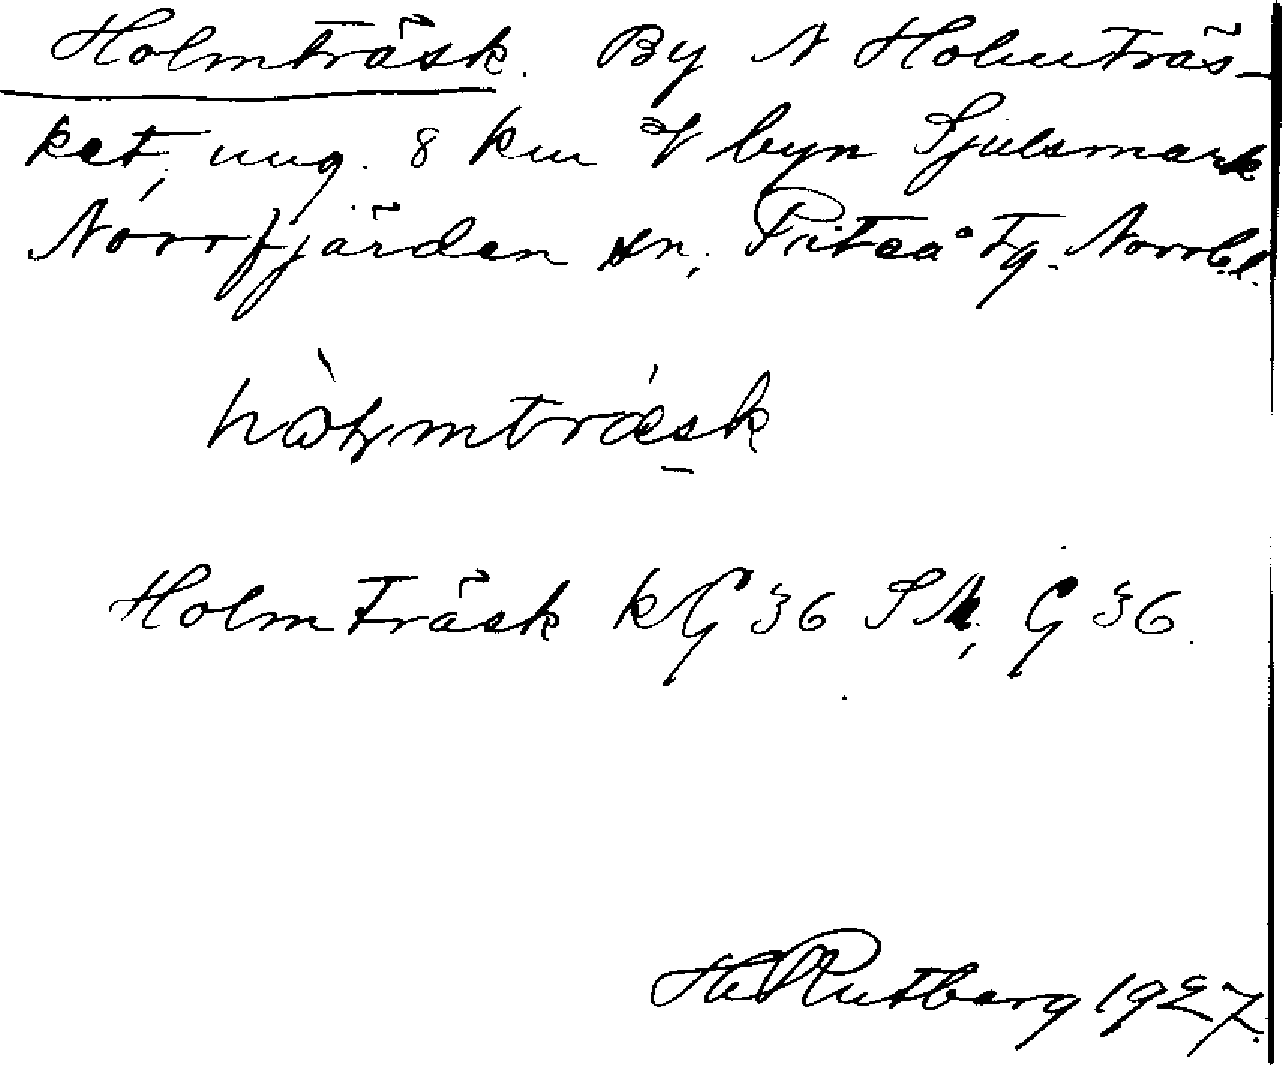 Holmträsk. By N Holmträs-
ket, ung. 8 km V byn Sjulsmark
Norrfjärden sn, Piteå tg. Norrb.l.
Holmträsk kG 36 SM, G 36.
Hl Rutberg 1927.